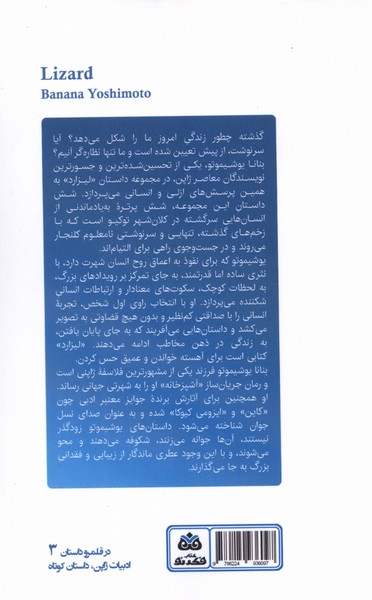 Lizard
Banana Yoshimoto
گذشته چطور زندگیِ امروز ما را شکل می‌دهد؟ آیا
سرنوشت، از پیش تعیین شده است و ما تنها نظاره‌گر آنیم؟
بنانا یوشیموتو، یکی از تحسین‌شده‌ترین و جسورترین
نویسندگان معاصر ژاپن، در مجموعه داستان «لیزارد» به
همین پرسش‌های ازلی و انسانی می‌پردازد. شش
داستان این مجموعه، شش پرترۀ به‌یادماندنی از
انسان‌هایی سرگشته در کلان‌شهر توکیو است که با
زخم‌های گذشته، تنهایی و سرنوشتی نامعلوم کلنجار
می‌روند و در جست‌وجوی راهی برای التیام‌اند.
یوشیموتو که برای نفوذ به اعماق روح انسان شهرت دارد، با
نثری ساده اما قدرتمند، به جای تمرکز بر رویدادهای بزرگ،
به لحظات کوچک، سکوت‌های معنادار و ارتباطات انسانیِ
شکننده می‌پردازد. او با انتخاب راوی اول شخص، تجربۀ
انسانی را با صداقتی کم‌نظیر و بدون هیچ قضاوتی به تصویر
می‌کشد و داستان‌هایی می‌آفریند که به جای پایان یافتن،
به زندگی در ذهن مخاطب ادامه می‌دهند. «لیزارد»
کتابی است برای آهسته خواندن و عمیق حس کردن.
بنانا یوشیموتو فرزند یکی از مشهورترین فلاسفۀ ژاپنی است
و رمان جریان‌ساز «آشپزخانه» او را به شهرتی جهانی رساند.
او همچنین برای آثارش برندۀ جوایز معتبر ادبی چون
«کاین» و «ایزومی کیوکا» شده و به عنوان صدای نسل
جوان شناخته می‌شود. داستان‌های یوشیموتو زودگذر
نیستند، آن‌ها جوانه می‌زنند، شکوفه می‌دهند و محو
می‌شوند، و با این وجود عطری ماندگار از زیبایی و فقدانی
بزرگ به جا می‌گذارند.
در قلمرو داستان ۳
ادبیات ژاپن، داستان کوتاه
کتاب
9 786224 936097